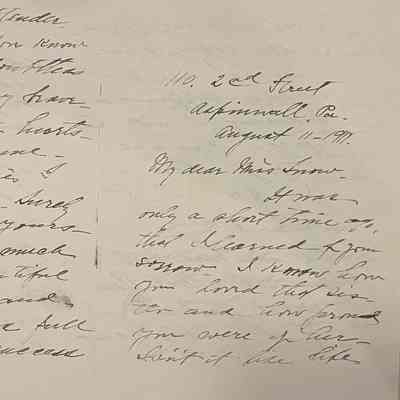 Tender
you know
brave
hurts
Surely
yours
much
and
full
success
110. 2nd Street
Aspinwall, Pa.
August 11-1917.
My dear Miss Snow-
It was
only a short time ago,
that I learned of your
sorrow. I know how
you loved that sis-
ter and how proud
you were of her-
Isn't it like life